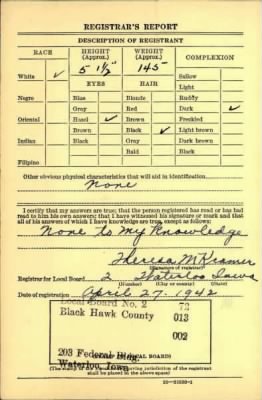 REGISTRAR'S REPORT
DESCRIPTION OF REGISTRANT
RACE HEIGHT (Approx.) WEIGHT (Approx.) COMPLEXION
5 1½" 145
White ✓ Sallow
EYES HAIR Light
Negro Blue Blonde Ruddy
Gray Red Dark ✓
Oriental Hazel ✓ Brown Freckled
Brown Black ✓ Light brown
Indian Black Gray Dark brown
Bald Black
Filipino
Other obvious physical characteristics that will aid in identification
None
I certify that my answers are true; that the person registered has read or has had
read to him his own answers; that I have witnessed his signature or mark and that
all of his answers of which I have knowledge are true, except as follows:
None to My Knowledge
Theresa M Kramer
(Signature of registrar)
Registrar for Local Board 2 Waterloo Iowa
(Number) (City or county) (State)
Date of registration April 27-1942
Local Board No. 2 72
Black Hawk County 013
002
203 Federal Bldg.
Waterloo, Iowa
(STAMP OF LOCAL BOARD)
(The stamp of the Local Board having jurisdiction of the registrant
shall be placed in the above space)